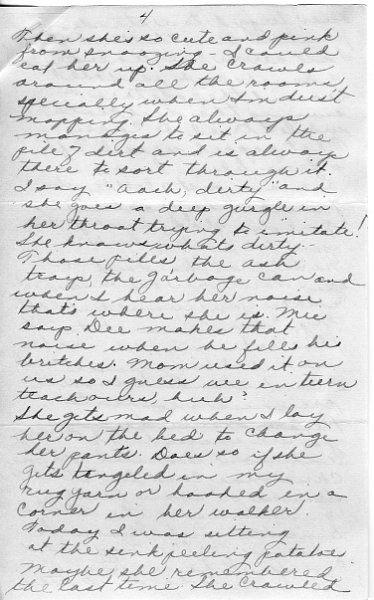 4
Then she's so cute and pink
from snoozing I could
eat her up. She crawls
around all the rooms,
specially when I'm dust
mopping. She always
manages to sit in the
pile of dirt and is always
there to sort through it.
I say "aach, dirty" and
she goes a deep gurgle in
her throat trying to imitate!
She knows what's dirty -
Those pills the ash
trays, the garbage can and
when I hear her noise
that's where she is. Mie
says Dee makes that
noise when he fills his
britches. Mom used it on
us so I guess we in tern
teach ours, huh?
She gets mad when I lay
her on the bed to change
her pants. Does so if she
gets tangeled in my
rug yarn or hooked in a
corner in her walker.
Today I was sitting
at the sink peeling patatoe.
Maybe she remembered
the last time. She crawled